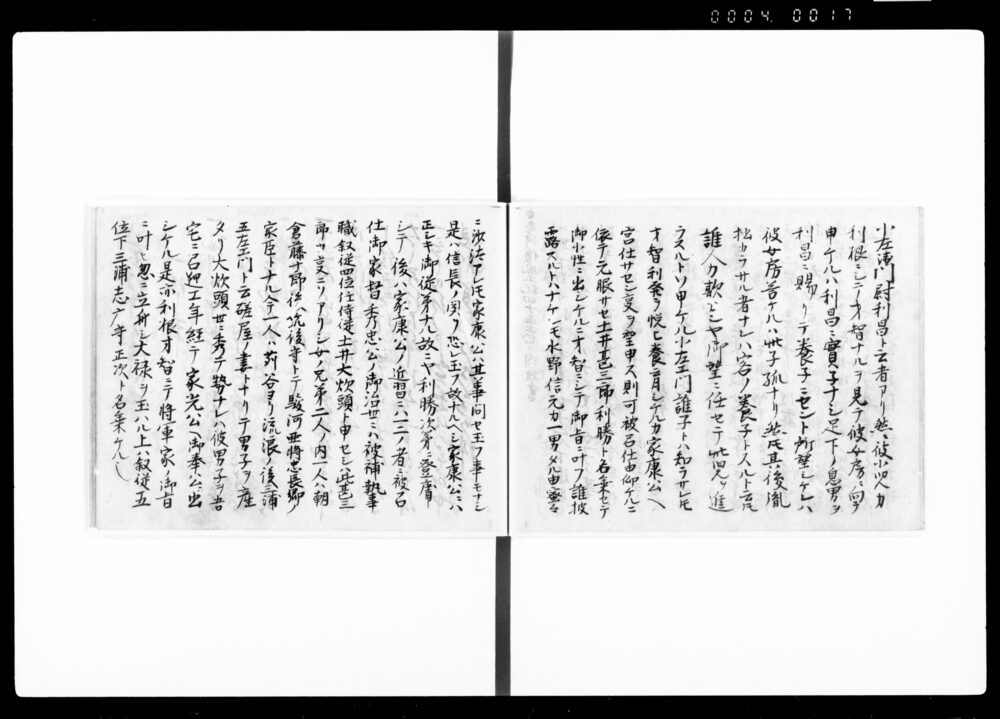 0004.0017
小左衛門尉利昌ト云者アリ然ニ彼小児カ
利根ニシテ才智ナルヲ見テ彼女房ニ向テ
申ケルハ利昌ニ實子ナシ足下ノ息男ヲ
利昌ニ賜リテ養子ニセント所望シケレハ
彼女房答ケルハ此子孤ナリ然氏其後胤
松カラサル者ナレハ容ノ養子トスルト云氏
誰人カ歎ヘシヤ御望ニ任セテ此児ヲ進
ラスルトソ申ケル小左エ門誰子トハ知ラサレ氏
才智利発ヲ悦ヒ養育シケルカ家康公ヘ
宮仕サセン支ヲ望申ス則可被召仕由仰ケルニ
依テ元服サセ土井甚三郎利勝ト名乗セテ
御小性ニ出シケルニ才智ニシテ御旨ニ叶フ誰披
露スルトハナケレモ水野信元カ一男タル由密々
ニ沙汰アレ氏家康公ハ其事問セ玉フ事モナシ
是ハ信長ノ聞ヲ恐レ玉フ故ナルヘシ家康公ニハ
正シキ御従弟ナル故ニヤ利勝次第ニ登庸
シテ後ハ家康公ノ近習ニハ一二ノ者ニ被召
仕御家督秀忠公ノ御治世ニハ被補執事
職叙従四位任侍従土井大炊頭ト申セシ此甚三
郎カ事ニソアリシ女兄弟二人ノ内一人ハ朝
倉藤十郎後ハ筑後守トテ駿河亜将忠長卿ノ
家臣トナル今一人ハ苅谷ヨリ流浪ノ後三浦
五左エ門ト云磋屋ノ妻トナリテ男子ヲ産
メリ大炊頭世ニ秀テ勢ナレハ彼男子ヲ吾
宅ニ召迎エ年経テ家光公ヘ御奉公ニ出
シケル是亦利根才智ニテ将軍家ノ御旨
ニ叶ヒ忽ニ立身シ大禄ヲ玉ハル上ハ叙従五
位下三浦志广守正次ト名乗ケルトゝ